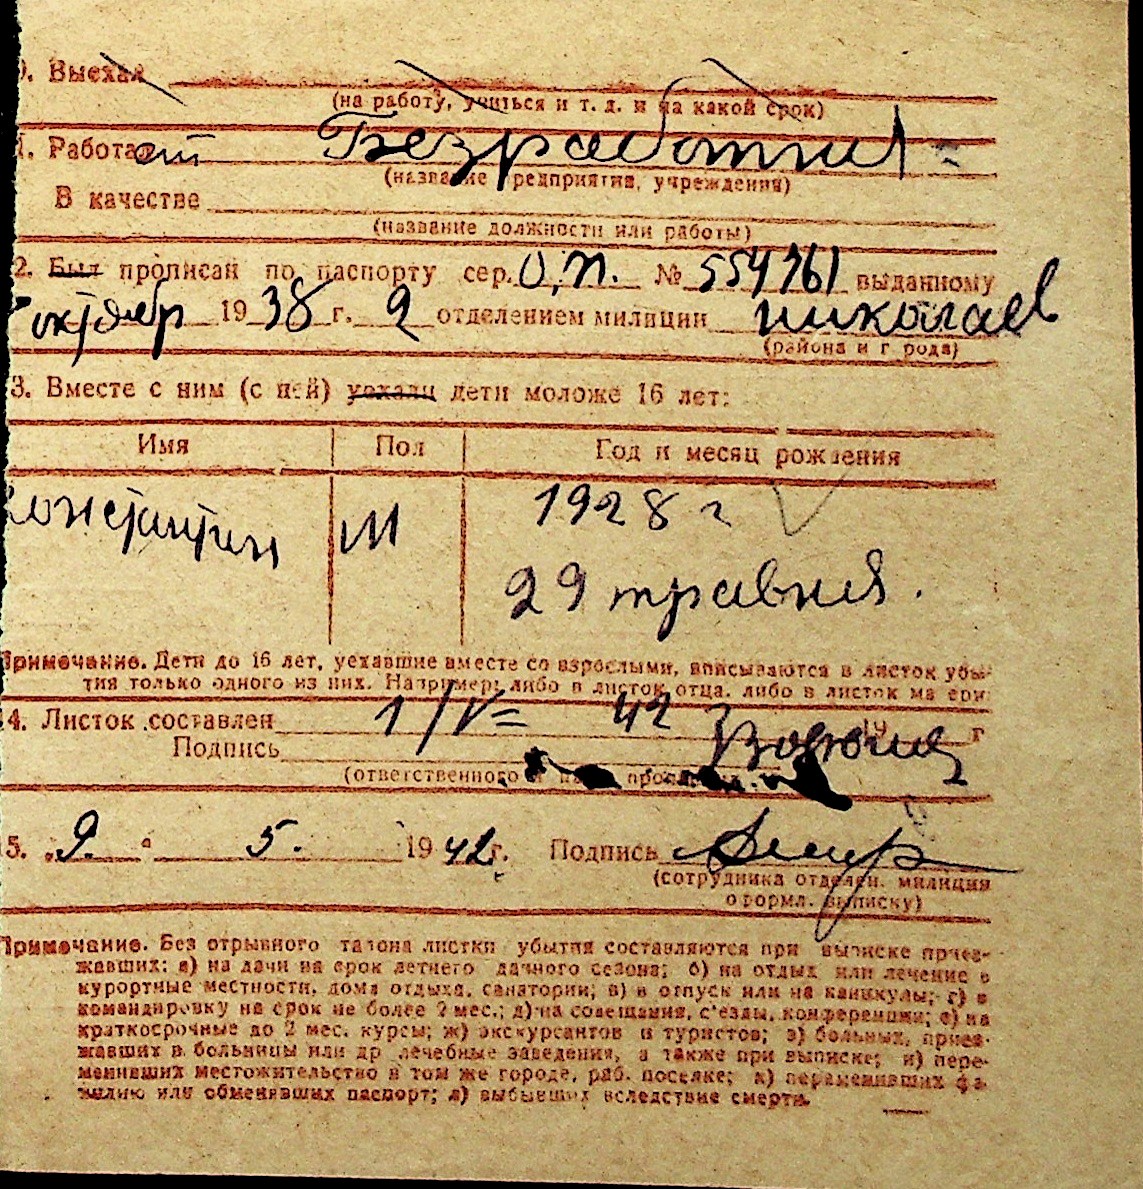 0. Выехал
(на работу, учиться и т. д. и на какой срок)
1. Работает Безработний
(название предприятия, учреждения)
В качестве
(название должности или работы)
2. Был прописан по паспорту сер. О, П. № 554761 выданному
октябр 1938 г. 2 отделением милиции николаев
(района и города)
3. Вместе с ним (с ней) уехали дети моложе 16 лет:
Имя Пол Год и месяц рождения
Константин М 1928 г
29 травня.
Примечание. Дети до 16 лет, уехавшие вместе со взрослыми, вписываются в листок убы-
тия только одного из них. Например: либо в листок отца, либо в листок матери
4. Листок составлен 1/V= 42 19 г
Подпись
(ответственного за прописку)
5. „9. “ 5. 1942 г. Подпись
(сотрудника отделен. милиции
оформл. выписку)
Примечание. Без отрывного талона листки убытия составляются при выписке приез-
жавших: а) на дачи на срок летнего дачного сезона; б) на отдых или лечение в
курортные местности, дома отдыха, санатории; в) в отпуск или на каникулы; г) в
командировку на срок не более 2 мес.; д) на совещания, с'езды, конференции; е) на
краткосрочные до 2 мес. курсы; ж) экскурсантов и туристов; з) больных, приез-
жавших в больницы или др лечебные заведения, а также при выписке; и) пере-
менивших местожительство в том же городе, раб. поселке; к) переменивших фа-
милию или обменявших паспорт; л) выбывших вследствие смерти.